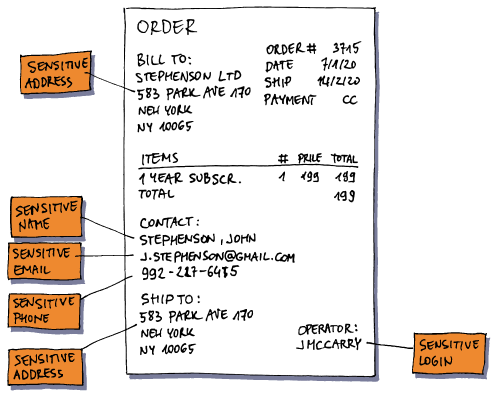 ORDER
ORDER# 3715
BILL TO:
DATE 7/1/20
STEPHENSON LTD
SHIP 14/2/20
583 PARK AVE 170
PAYMENT CC
NEW YORK
NY 10065
SENSITIVE
ADDRESS
ITEMS # PRICE TOTAL
1 YEAR SUBSCR. 1 199 199
TOTAL 199
CONTACT:
STEPHENSON, JOHN
J.STEPHENSON@GMAIL.COM
992-227-6485
SENSITIVE
NAME
SENSITIVE
EMAIL
SENSITIVE
PHONE
SHIP TO:
583 PARK AVE 170
NEW YORK
NY 10065
SENSITIVE
ADDRESS
OPERATOR:
JMCCARRY
SENSITIVE
LOGIN